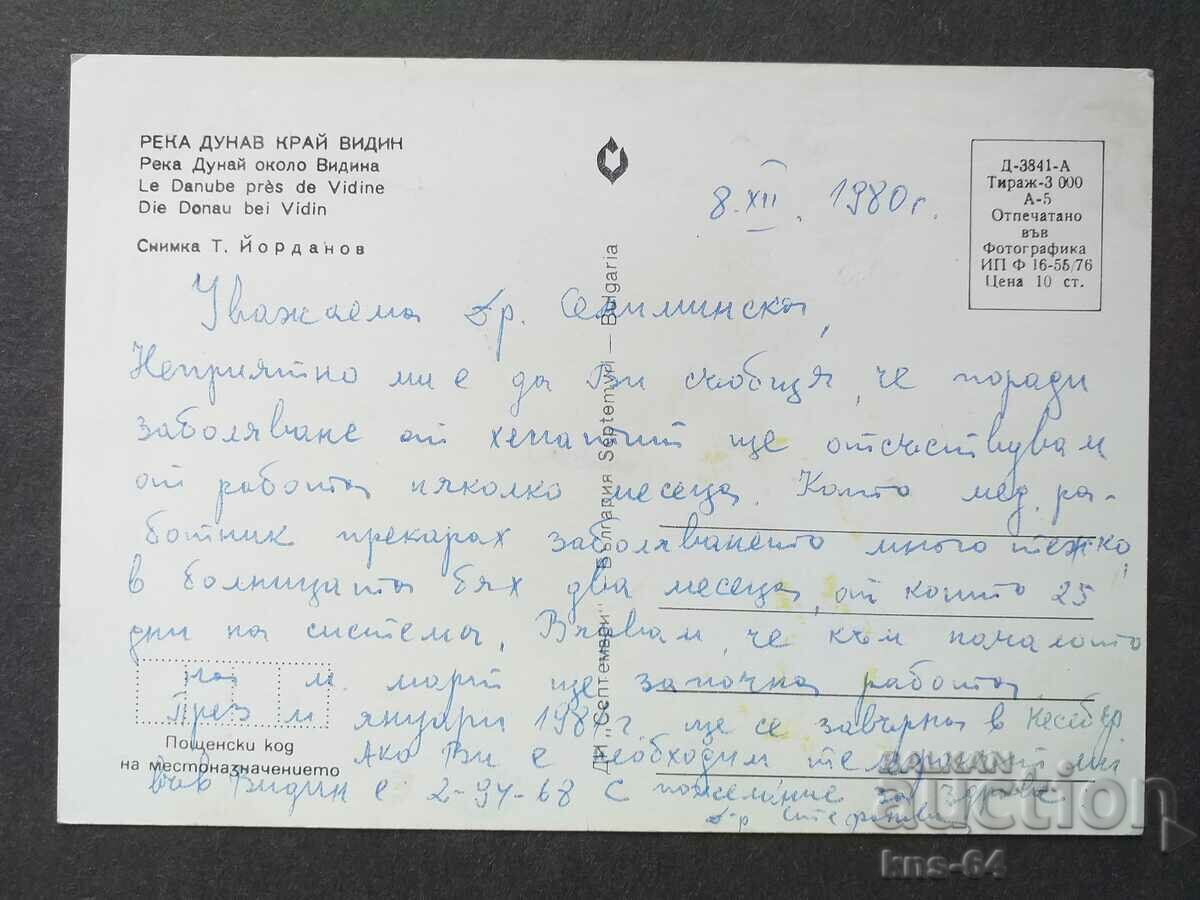 РЕКА ДУНАВ КРАЙ ВИДИН
Река Дунай около Видина
Le Danube près de Vidine
Die Donau bei Vidin
Снимка Т. Йорданов
Д-3841-А
Тираж-3 000
А-5
Отпечатано
във
Фотографика
ИП Ф 16-55/76
Цена 10 ст.
8. XII. 1980 г.
Уважаема Др. Селиминска,
Неприятно ми е да Ви съобщя, че поради
заболяване от хепатит ще отсъствувам
от работа няколко месеца. Като мед. ра-
ботник прекарах заболяването много тежко,
в болницата бях два месеца, от които 25
дни на система. Вярвам, че към началото
на м. март ще започна работа.
През м януари 1981 г. ще се завърна в Несебър.
Ако Ви е необходим телефонът ми
във Видин е 2-94-68 С пожелание за здраве:
д-р
ДИ "Септември" България Septemvri — Bulgaria
Пощенски код
на местоназначението
BALKAN
auction
kns-64